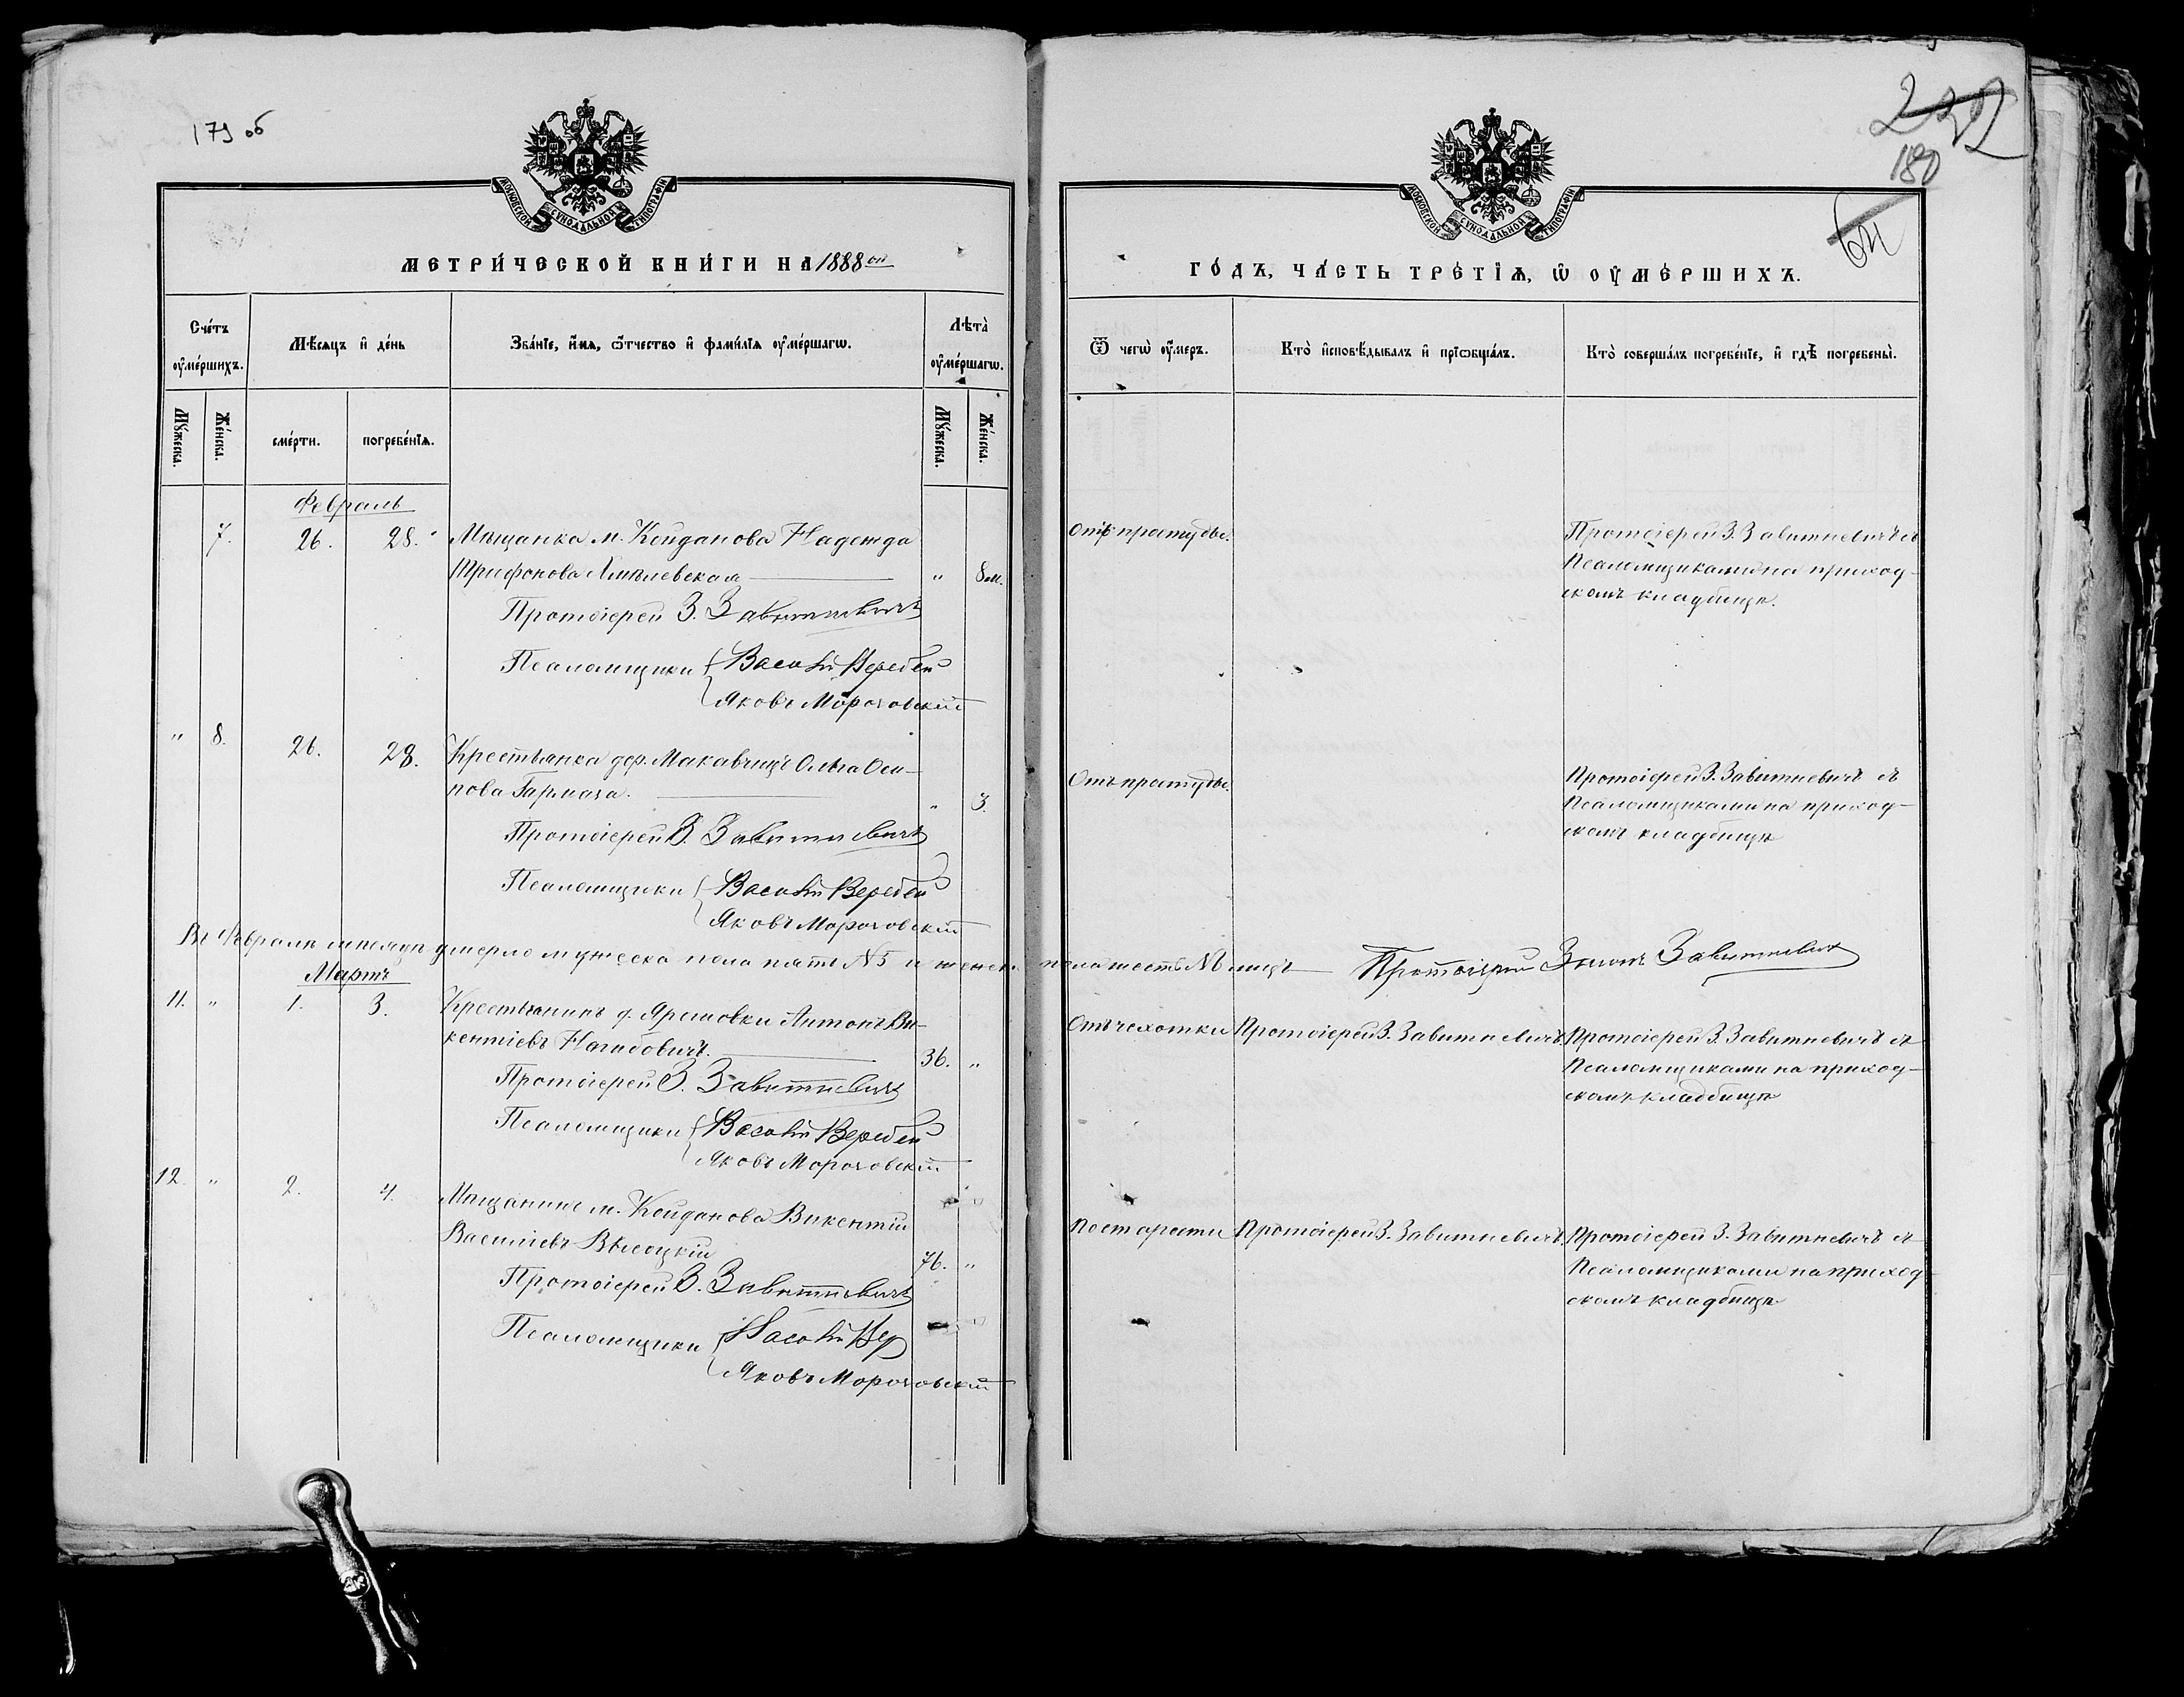 179 об
МОСКОВСКОЙ СѴНОДАЛЬНОЙ ТИПОГРАФІИ
МЕТРИ́ЧЕСКОЙ КНИ́ГИ НА 1888ой
Сче́тъ оумéршихъ.
Мѣ́сяцъ и де́нь
Зва́нїе, и́мя, ѻ҆́тчество и фами́лїя оумéршагѡ.
Лѣта̀ оумéршагѡ.
Мꙋ́жеска.
Же́нска.
сме́рти.
погребе́нїя.
Мꙋ́жеска.
Же́нска.
Февраль
7. 26. 28. Мѣщанка м. Койданова Надежда
Трифонова — " 8 м.
Протоіерей З. Завитневичъ
Псаломщики Василій Веребей
Яковъ Морочовскій
" 8. 26. 28. Крестьянка дер. Макавчицъ Ольга Оси-
пова Гармаза. — " 3.
Протоіерей З. Завитневичъ
Псаломщики Василій Веребей
Яковъ Морочовскій
Въ Февралѣ мѣсяцѣ умерло мужеска пола пять №5 и женска пола шесть лицъ — Протоіерей Завитневичъ
Мартъ
11. " 1. 3. Крестьянинъ д. Яреловки Антонъ Ви-
кентіевъ — 36. "
Протоіерей З. Завитневичъ
Псаломщики Василій Веребей
Яковъ Морочовскій
12. " 2. 4. Мѣщанинъ м. Койданова Викентій
Василіевъ Высоцкій 76. "
Протоіерей З. Завитневичъ
Псаломщики Василій Вер
Яковъ Морочовскій
180
МОСКОВСКОЙ СѴНОДАЛЬНОЙ ТИПОГРАФІИ
ГО́ДЪ, ЧА́СТЬ ТРЕ́ТІѦ, Ѡ ОУМЕ́РШИХЪ.
Ѿ чегѡ̀ оу́меръ.
Кто̀ исповѣ́дывалъ и прїѡбща́лъ.
Кто̀ соверша́лъ погребе́нїе, и гдѣ̀ погребены̀.
Отъ простуды.
Протоіерей З. Завитневичъ съ
Псаломщиками на приход-
скомъ кладбищѣ.
Отъ простуды.
Протоіерей З. Завитневичъ съ
Псаломщиками на приход-
скомъ кладбищѣ
Отъ чахотки
Протоіерей З. Завитневичъ
Протоіерей З. Завитневичъ съ
Псаломщиками на приход-
скомъ кладбищѣ
По старости
Протоіерей З. Завитневичъ
Протоіерей З. Завитневичъ съ
Псаломщиками на приход-
скомъ кладбищѣ